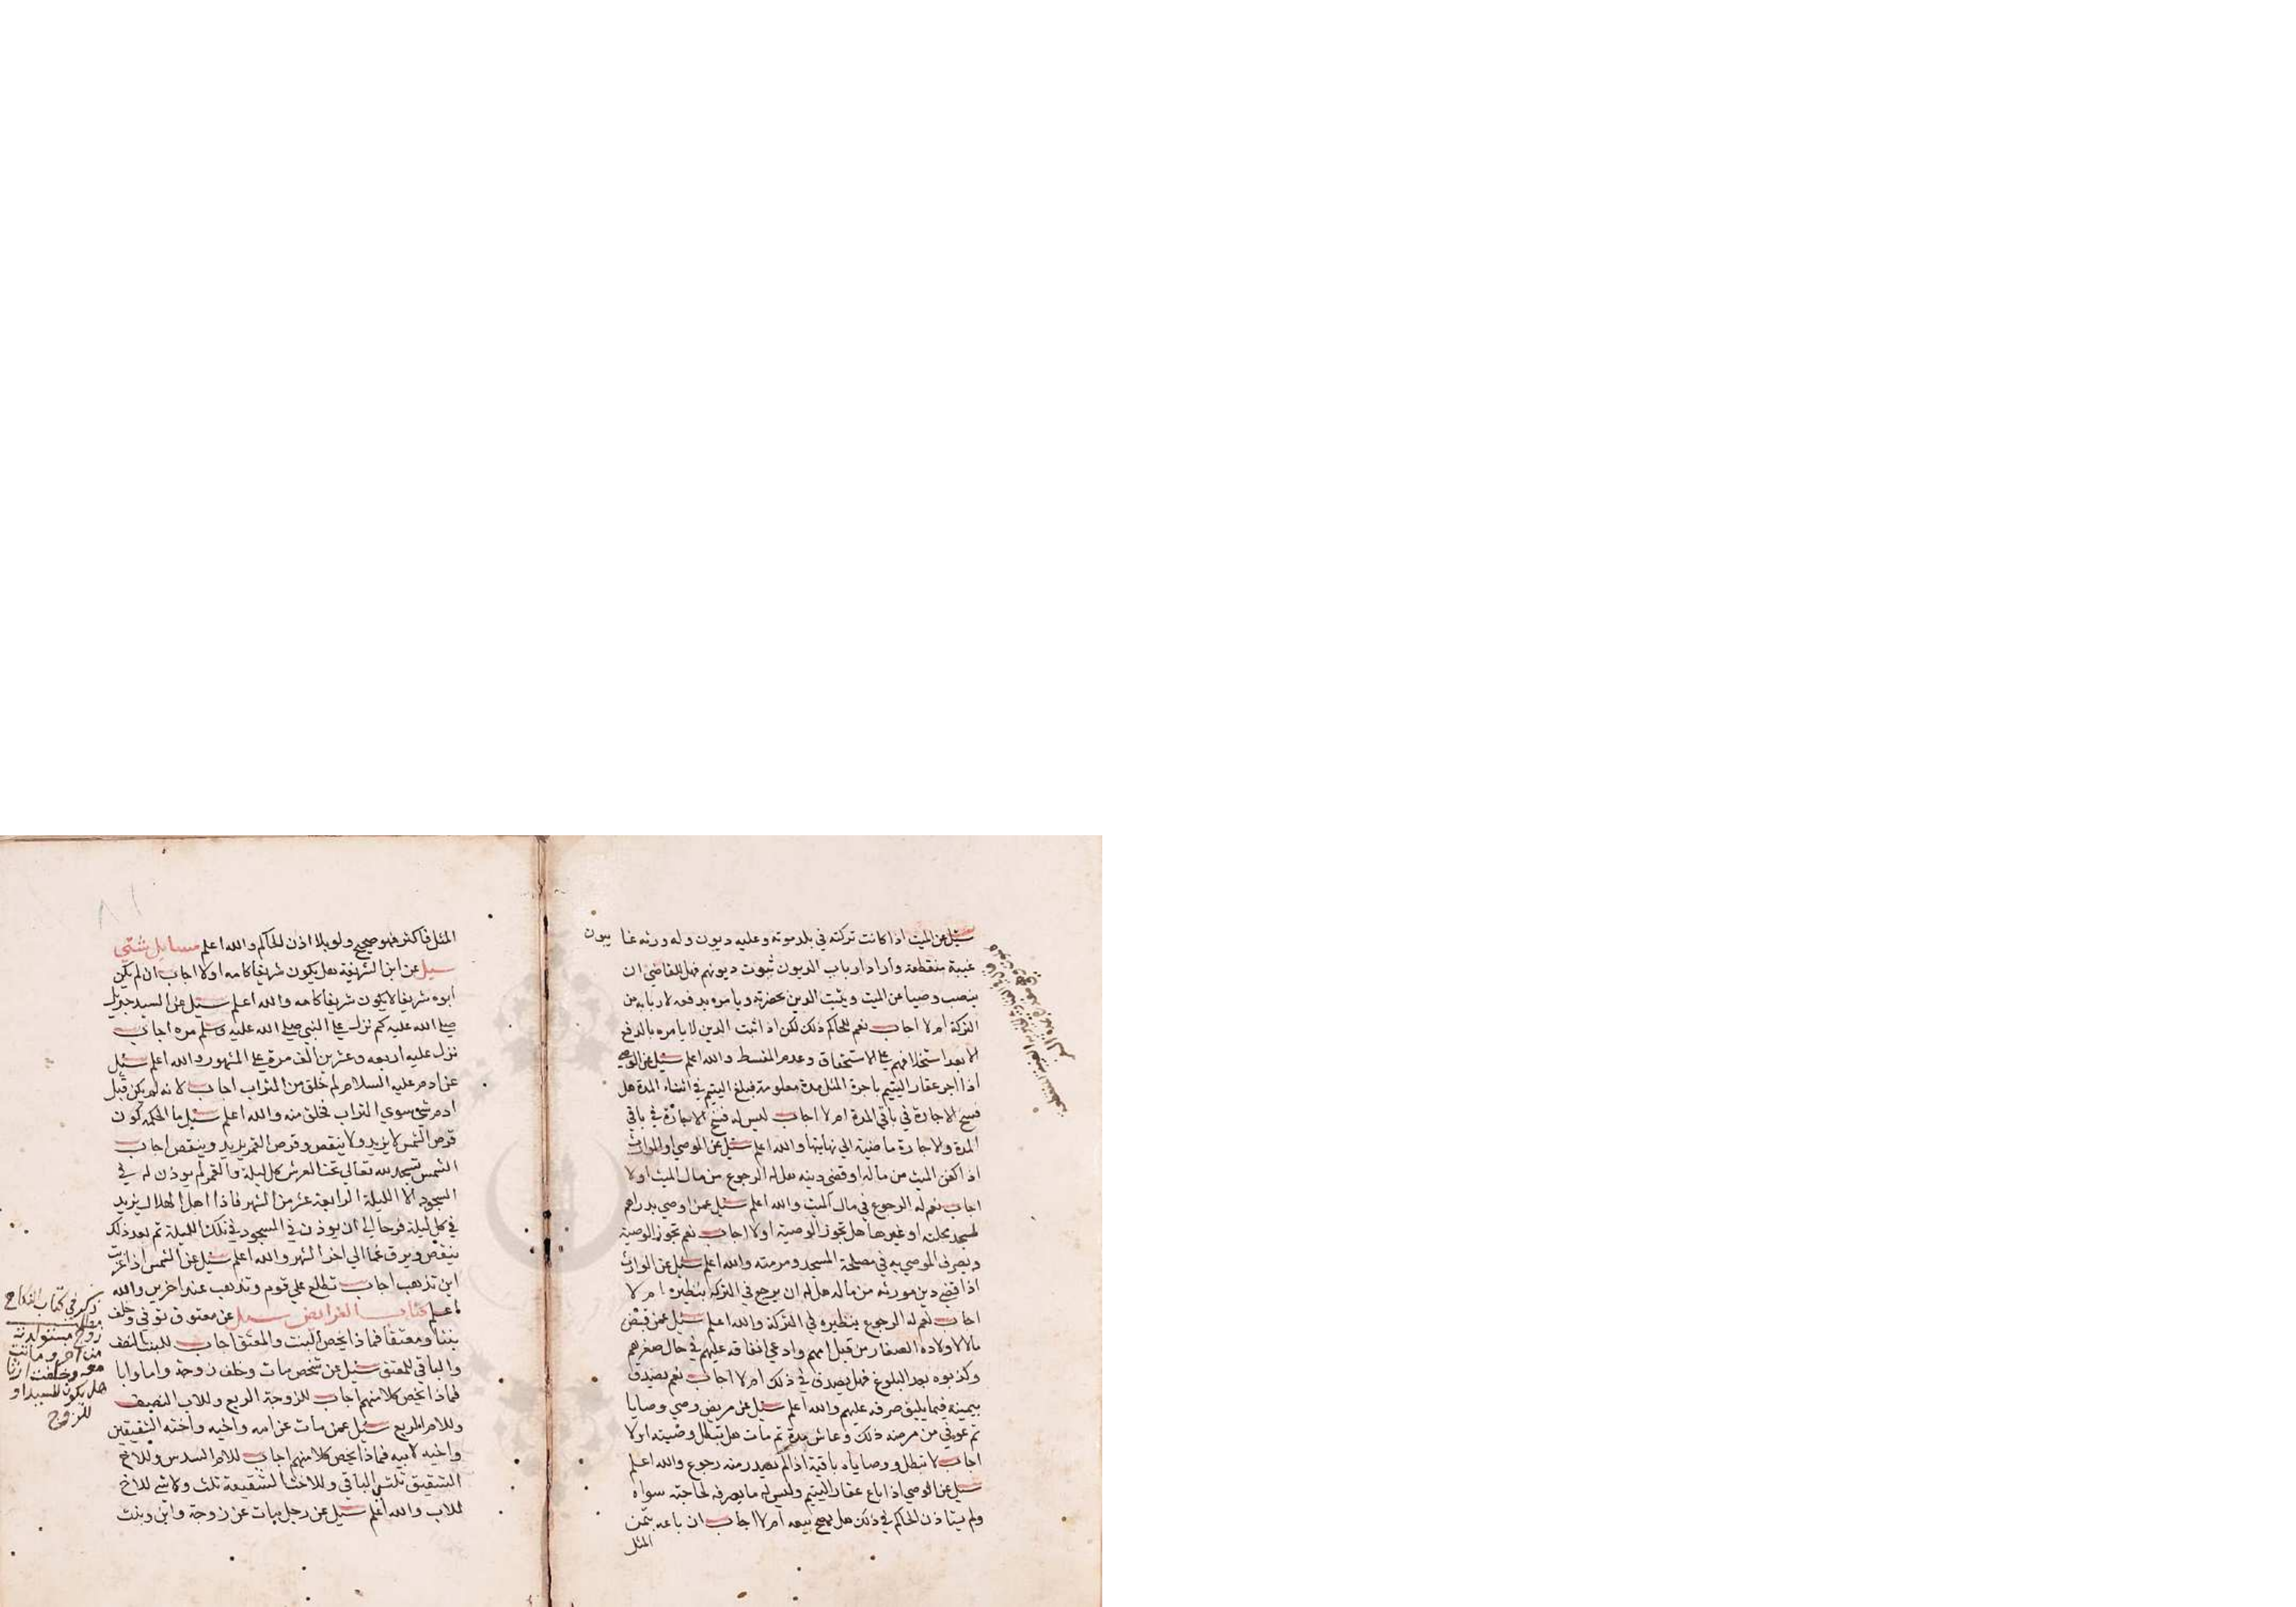 سئل عن الميت اذا كانت تركته في بلد موته وعليه ديون وله ورثه غايبون
غيبة منقطعة وأراد ارباب الديون ثبوت ديونهم فهل للقاضي ان
ينصب وصيا عن الميت ويثبت الدين بحضرته ويامره بدفعه لاربابه من
التركة ام لا اجاب نعم للحاكم ذلك لكن اذا ثبت الدين لا يامره بالدفع
الا بعد استحلافهم على الاستحقاق وعدم المسقط والله اعلم سئل عن الوصي
اذا اجر عقار اليتيم باجرة المثل مدة معلومة فبلغ اليتيم في اثناء المدة هل
فسخ الاجارة في باقي المدة ام لا اجاب ليس له فسخ الاجارة في باقي
المدة والاجارة ماضية الي نهايتها والله اعلم سئل عن الوصي او الوارث
اذا كفن الميت من ماله او قضى دينه هل له الرجوع من مال الميت اولا
اجاب نعم له الرجوع في مال الميت والله اعلم سئل عمن اوصي بدراهم
لمسجد محلته او غيرها هل تجوز الوصية اولا اجاب نعم تجوز الوصية
ويصرف الموصي به في مصلحة المسجد ومرمته والله اعلم سئل عن الوارث
اذا قضي دين مورثه من ماله هل له ان يرجع في التركة بنظيره ام لا
اجاب نعم له الرجوع بنظيره في التركة والله اعلم سئل عمن قبض
مالا لاولاده الصغار من قبل امهم وادعي انفاقه عليهم في حال صغرهم
وكذبوه بعد البلوغ فهل يصدق في ذلك ام لا اجاب نعم يصدق
بيمينه فيما يليق صرفه عليهم والله اعلم سئل عن مريض وصي وصايا
ثم عوفي من مرضه ذلك وعاش مدة ثم مات هل تبطل وصيته ام لا
اجاب لا تبطل ووصاياه باقية اذا لم يصدر منه رجوع والله اعلم
سئل عن الوصي اذا باع عقار اليتيم وليس له ما يصرفه لحاجته سواه
ولم يستاذن الحاكم في ذلك هل يصح بيعه ام لا اجاب ان باعه بثمن
المثل
المثل فاكثر فهو صحيح ولو بلا اذن الحاكم والله اعلم مسايل شتي
سيل عن ابن الشريفة هل يكون شريفا كامه اولا اجاب ان لم يكن
ابوه شريفا لا يكون شريفا كامه والله اعلم سئيل عن السيد جبريل
صلى الله عليه كم نزل على النبي صلى الله عليه وسلم مره اجاب
نزل عليه اربعه وعشرين ألف مرة على المشهور والله اعلم سئيل
عن ادم عليه السلام لم خلق من التراب اجاب لانه لم يكن قبل
ادم شي سوي التراب فخلق منه والله اعلم سئيل ما الحكمه كون
قرص الشمس لا يزيد ولا ينقص وقرص القمر يزيد وينقص اجاب
الشمس تسجد لله تعالي تحت العرش كل ليلة والقمر لم يوذن له في
السجود الا الليلة الرابعة عشر من الشهر فاذا اهل الهلال يزيد
في كل ليلة فرحا الي ان يوذن في السجود في تلك الليلة ثم بعد ذلك
ينقص ويرق غما الي اخر الشهر والله اعلم سئيل عن الشمس اذا غربت
اين تذهب اجاب تطلع علي قوم وتذهب عند اخرين والله
اعلم كتاب الفرايض سيل عن معتوق توفي وخلف
بنتا ومعتقا فماذا يخص البنت والمعتق اجاب للبنت النصف
والباقي للمعتق سئيل عن شخص مات وخلف زوجة واما وابا
فماذا يخص كلا منهم اجاب للزوجة الربع وللاب النصف
وللام الربع سئيل عمن مات عن امه واخيه واخته الشقيقين
واخيه لابيه فماذا يخص كلا منهم اجاب للام السدس وللاخ
الشقيق ثلثي الباقي وللاخت الشقيقة ثلث ولا شي للاخ
للاب والله اعلم سئيل عن رجل مات عن زوجة وابن وبنت
ذكر في كتاب النكاح
زوج مستولدته
من اخر وماتت
معه وخلفت ارثا
هل يكون للسيد او
للزوج